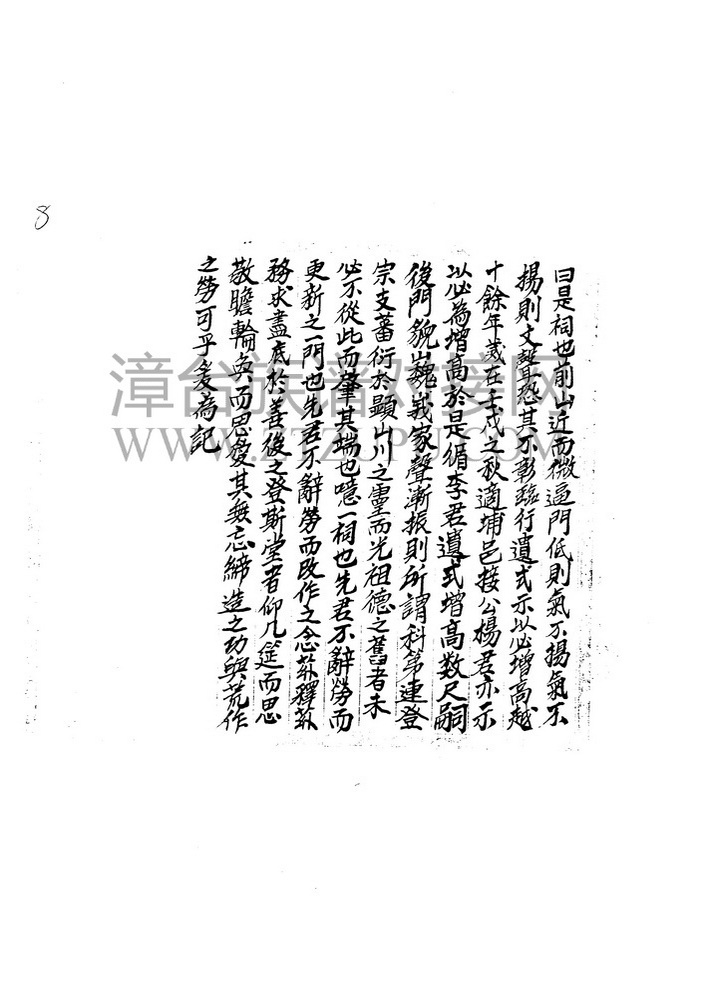 8
曰是祠也前山近而微逼門低則氣不揚氣不
揚則文譽恐其不彰臨行遺式示以必增高越
十餘年歲在壬戌之秋適埔邑接公楊君亦示
以必為增高於是循李君遺式增高数尺嗣
後門貌巍峩家聲漸振則所謂科第連登
宗支蕃衍於顯山川之靈而光祖德之舊者未
必不從此而肇其端也噫一祠也先君不辭勞而
更新之一門也先君不辭勞而改作之念茲釋茲
務求盡底於善後之登斯堂者仰几筵而思
敬瞻輪奐而思愛其無忘締造之功與荒作
之勞可乎爰為記
漳台族谱对接网
WWW.ZTZUPU.COM